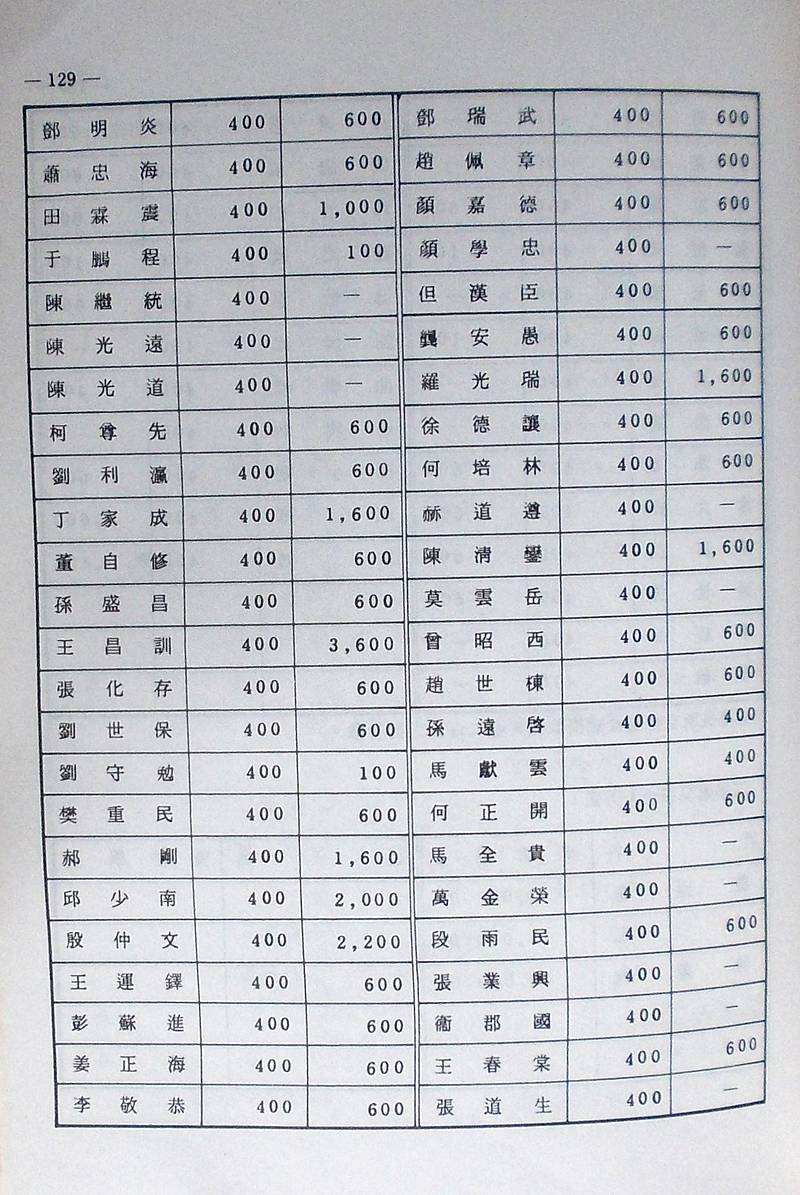 — 129 —
鄧明炎 400 600 鄧瑞武 400 600
蕭忠海 400 600 趙佩章 400 600
田霖震 400 1,000 顏嘉德 400 600
于鵬程 400 100 顏學忠 400 —
陳繼統 400 — 但漢臣 400 600
陳光遠 400 — 龔安愚 400 600
陳光道 400 — 羅光瑞 400 1,600
柯尊先 400 600 徐德讓 400 600
劉利瀛 400 600 何培林 400 600
丁家成 400 1,600 道遵 400 —
董自修 400 600 陳清鑾 400 1,600
孫盛昌 400 600 莫雲岳 400 —
王昌訓 400 3,600 曾昭西 400 600
張化存 400 600 趙世棟 400 600
劉世保 400 600 孫遠啓 400 400
劉守勉 400 100 馬獻雲 400 400
樊重民 400 600 何正開 400 600
郝剛 400 1,600 馬全貴 400 —
邱少南 400 2,000 萬金榮 400 —
殷仲文 400 2,200 段雨民 400 600
王運鐸 400 600 張業興 400 —
彭蘇進 400 600 衞郡國 400 —
姜正海 400 600 王春棠 400 600
李敬恭 400 600 張道生 400 —